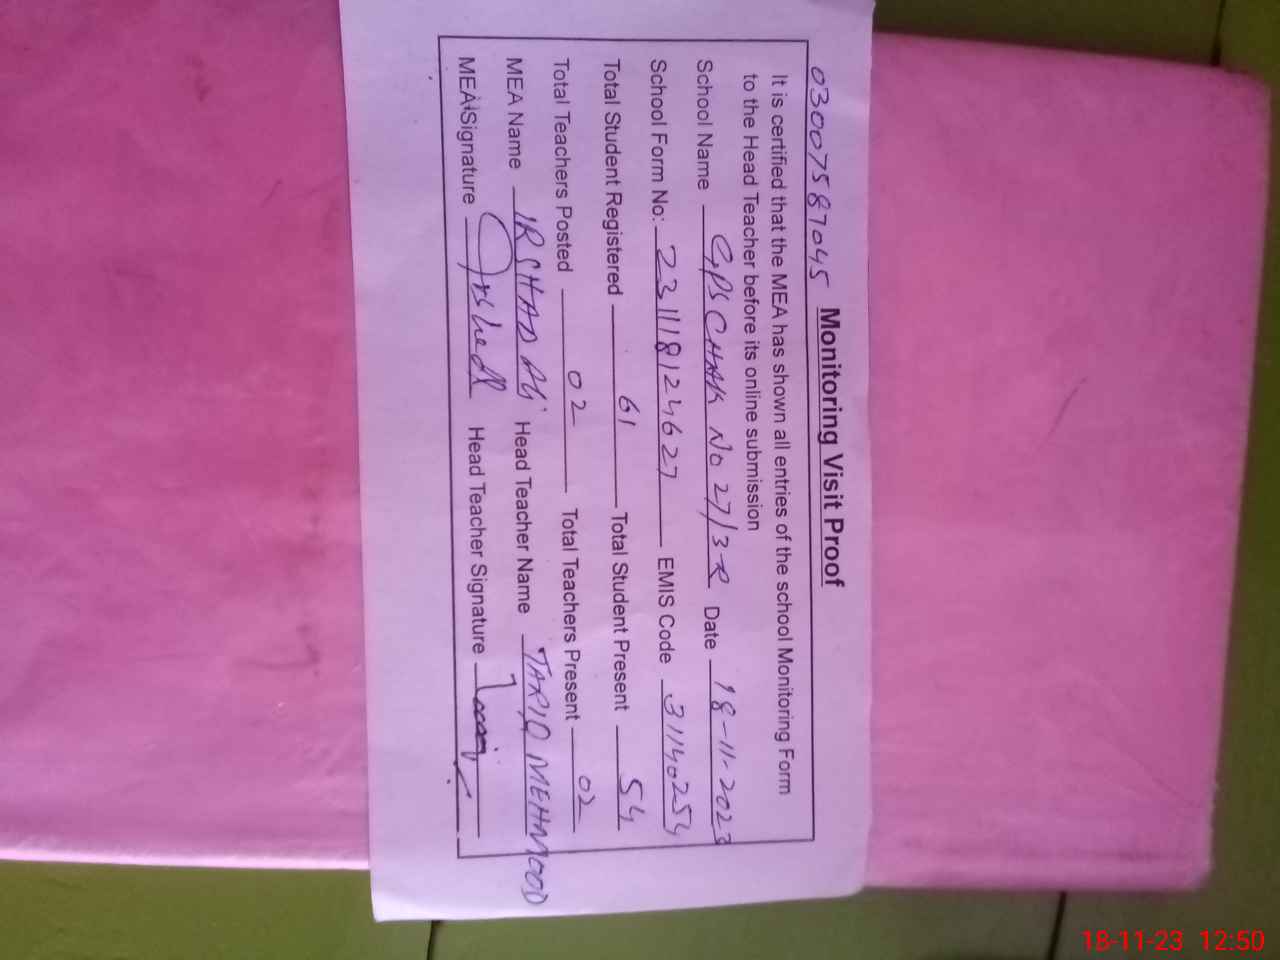 03007587045 Monitoring Visit Proof
It is certified that the MEA has shown all entries of the school Monitoring Form
to the Head Teacher before its online submission
School Name GPS CHAK NO 27/3-R Date 18-11-2023
School Form No: 231118124627 EMIS Code 31140254
Total Student Registered 61 Total Student Present 54
Total Teachers Posted 02 Total Teachers Present 02
MEA Name IRSHAD Ali Head Teacher Name TARIQ MEHMOOD
MEA Signature Irshad Head Teacher Signature
18-11-23 12:50